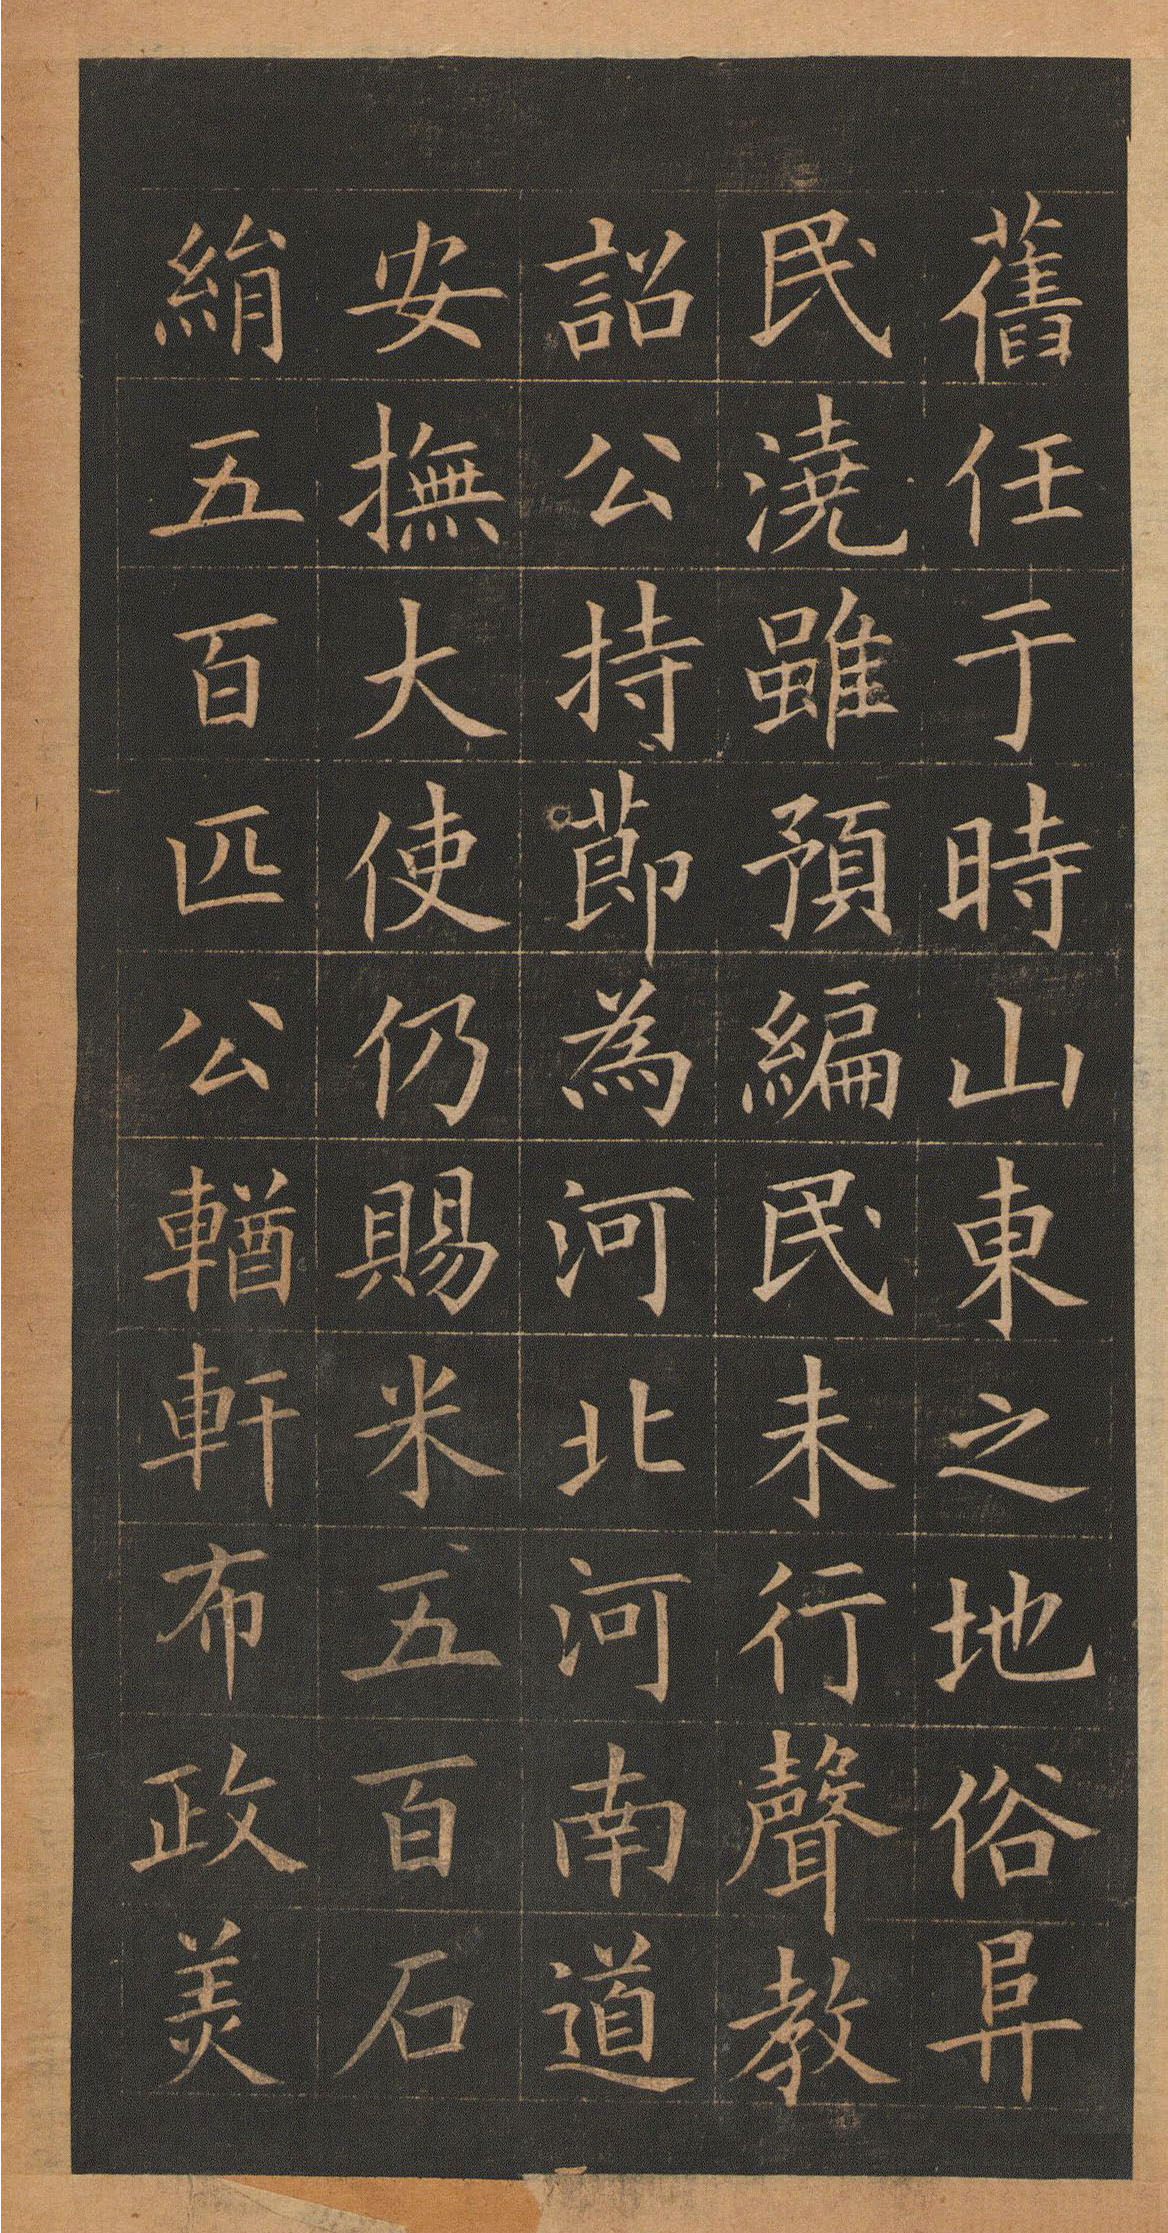 舊任于時山東之地俗阜
民澆雖預編民未行聲教
詔公持莭為河北河南道
安撫大使仍賜米五百石
絹五百匹公輶軒布政美